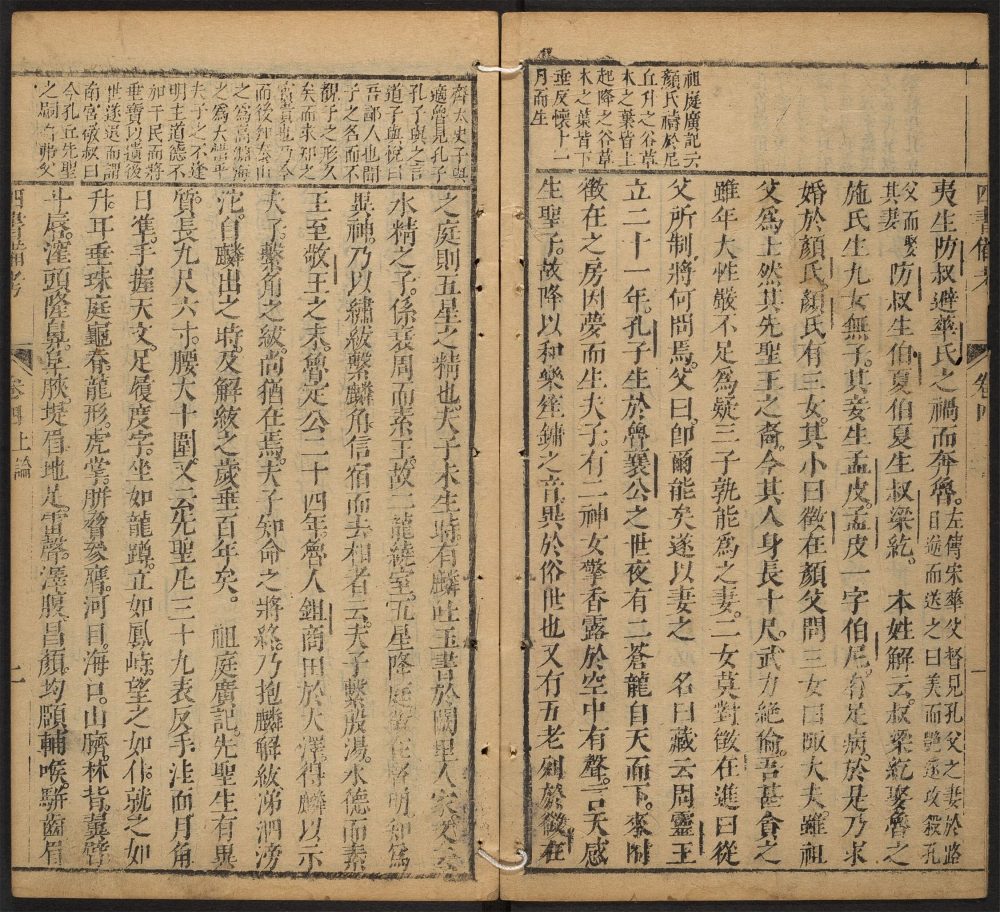 祖庭廣記云
顏氏禱於尼
丘升之谷草
木之葉皆上
起降之谷草
木之葉皆下
垂反懷十一
月而生
四書備考
卷四
夷生防叔避華氏之禍而奔魯左傳宋華父督見孔父之妻於路
目逆而送之曰美而艷遂攻殺孔
父而娶
其妻防叔生伯夏伯夏生叔梁紇 本姓解云叔梁紇娶魯之
施氏生九女無子其妾生孟皮孟皮一字伯尼有足病於是乃求
婚於顏氏顏氏有三女其小曰徵在顏父問三女曰陬大夫雖祖
父爲士然其先聖王之裔今其人身長十尺武力絶倫吾甚貪之
雖年大性嚴不足爲疑三子孰能爲之妻二女莫對徵在進曰從
父所制將何問焉父曰卽爾能矣遂以妻之 名曰藏云周靈王
立二十一年孔子生於魯襄公之世夜有二蒼龍自天而下來附
徵在之房因夢而生夫子有二神女擎香露於空中有聲言天感
生聖子故降以和樂笙鏞之音異於俗世也又有五老列於徵在
之庭則五星之精也夫子未生時有麟吐玉書於闕里人家文云
水精之子係衰周而素王故二龍繞室五星降庭徵在賢明知爲
異神乃以繡紱繫麟角信宿而去相者云夫子繫殷湯水德而素
王至敬王之末魯定公二十四年魯人鉏商田於大澤得麟以示
夫子繫角之紱尚猶在焉夫子知命之將終乃抱麟解紱涕泗滂
沱自麟出之時及解紱之歲垂百年矣 祖庭廣記先聖生有異
質長九尺六寸腰大十圍又云先聖凡三十九表反手洼面月角
日準手握天文足履度字坐如龍蹲立如鳳峙望之如仆就之如
升耳垂珠庭龜脊龍形虎掌胼脅參膺河目海口山臍林背翼臂
斗唇漥頭隆鼻阜脥堤眉地足雷聲澤腹昌顏均頤輔喉駢齒眉
齊太史子與
適魯見孔子
孔子與之言
道子與悅曰
吾鄙人也聞
子之名而不
覩子之形久
矣而來知之
寶貴也乃今
而後知泰山
之爲高淵海
之爲大惜乎
夫子之不逢
明王道德不
加于民而將
垂寶以遺後
世遂退而謂
南宮敬叔曰
今孔丘先聖
之嗣自弗父
四書備考
卷四 上論